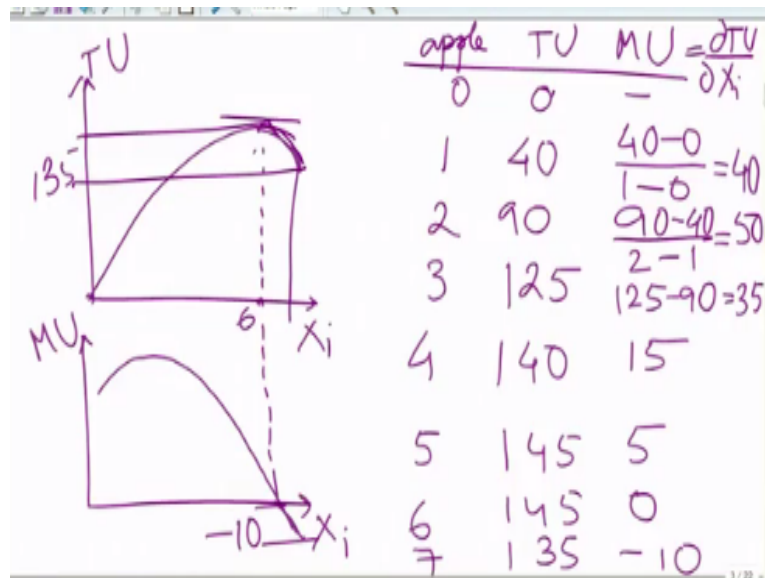 TU
135
6
Xi
MU
-10
Xi
apple TU MU = ∂TU/∂Xi
0 0 —
1 40 40-0/1-0 = 40
2 90 90-40/2-1 = 50
3 125 125-90=35
4 140 15
5 145 5
6 145 0
7 135 -10